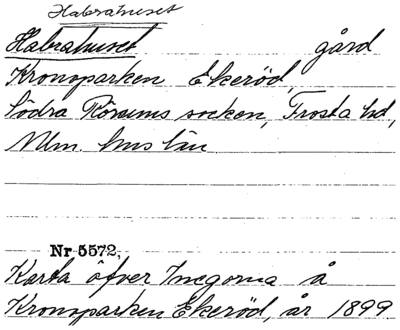 Habrahuset
Habrahuset gård
Kronoparken Ekeröd,
Södra Rörums socken, Frosta hd,
Mlm. hus län
Nr 5572,
Karta öfver Inegorna å
Kronoparken Ekeröd, år 1899